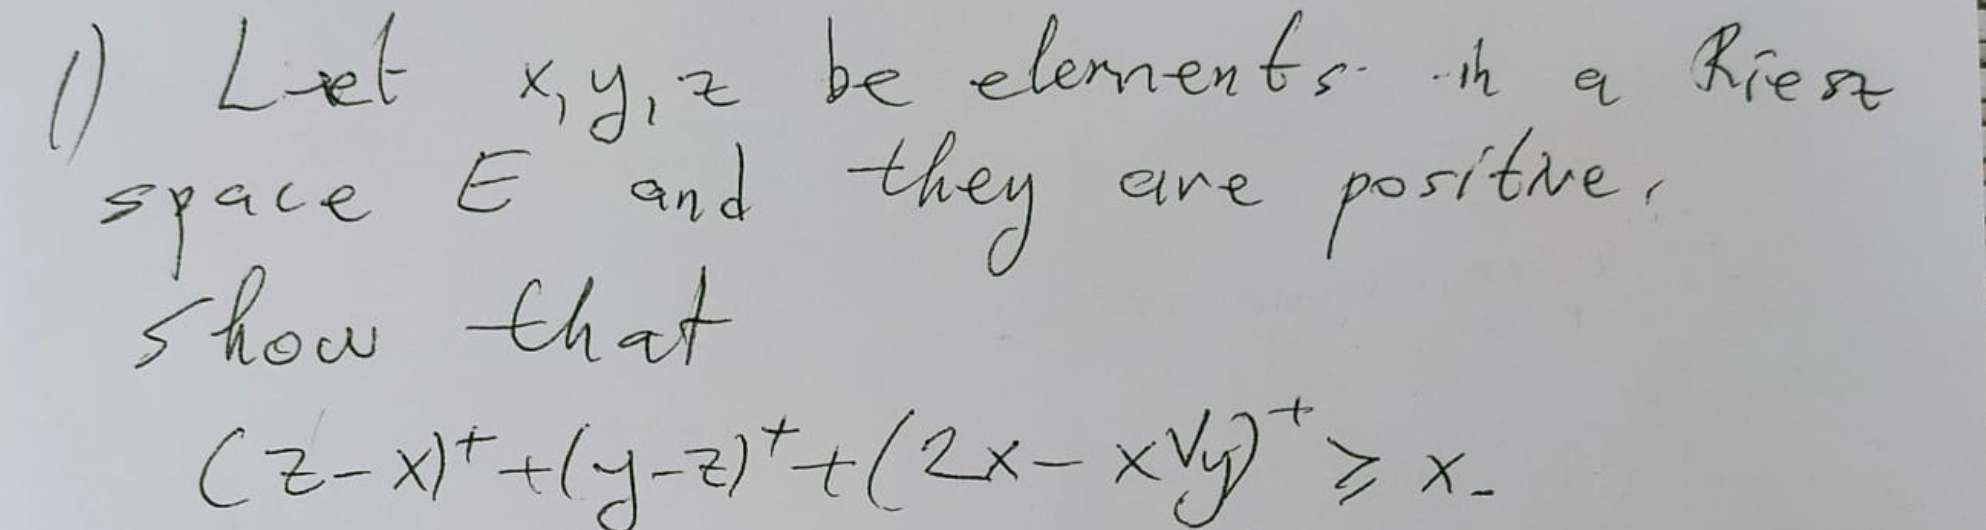 1) Let x, y, z be elements in a Riesz
space E and they are positive,
show that
(z-x)⁺+(y-z)⁺+(2x-x∨y)⁺ ≥ x.